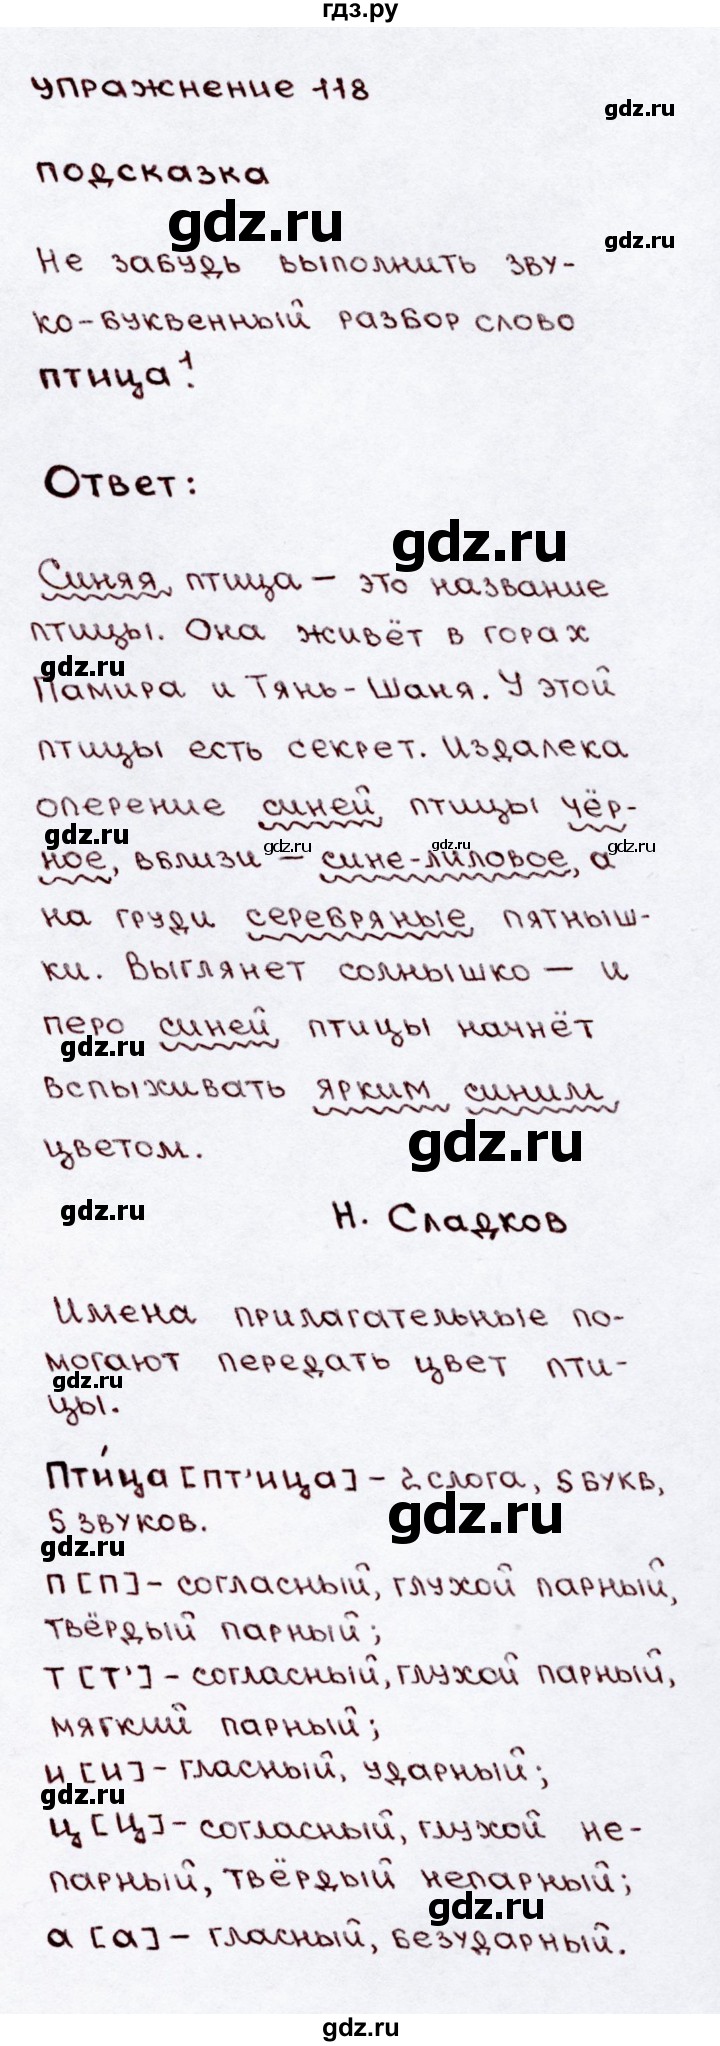 гдз.ру
упражнение 118
gdz.ru
подсказка
gdz.ru
gdz.ru
Не забудь выполнить зву-
ко-буквенный разбор слово
птица¹!
Ответ:
gdz.ru
Синяя птица – это название
птицы. Она живёт в горах
gdz.ru
Памира и Тянь-Шаня. У этой
птицы есть секрет. Издалека
оперение синей птицы чёр-
gdz.ru
ное, вблизи – сине-лиловое, а
gdz.ru gdz.ru gdz.ru
на груди серебряные пятныш-
ки. Выглянет солнышко – и
перо синей птицы начнёт
gdz.ru
вспыхивать ярким синим
цветом.
gdz.ru
gdz.ru
Н. Сладков
Имена прилагательные по-
могают передать цвет пти-
gdz.ru
цы.
Пти́ца [пт'ица] – 2 слога, 5 букв,
gdz.ru
5 звуков.
gdz.ru
п [п] – согласный, глухой парный,
твёрдый парный;
т [т'] – согласный, глухой парный,
мягкий парный;
и [и] – гласный, ударный;
gdz.ru
ц [ц] – согласный, глухой не-
парный, твёрдый непарный;
gdz.ru
а [а] – гласный, безударный.
gdz.ru